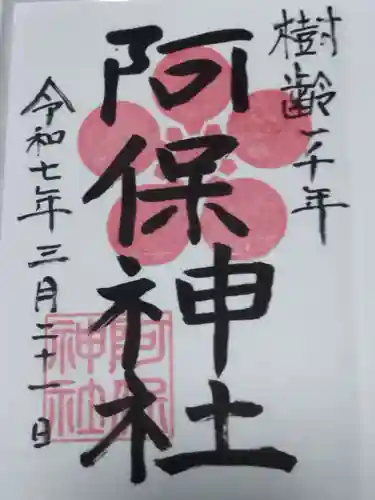 樹齢一千年
阿保神社
令和七年三月二十一日
阿保
神社